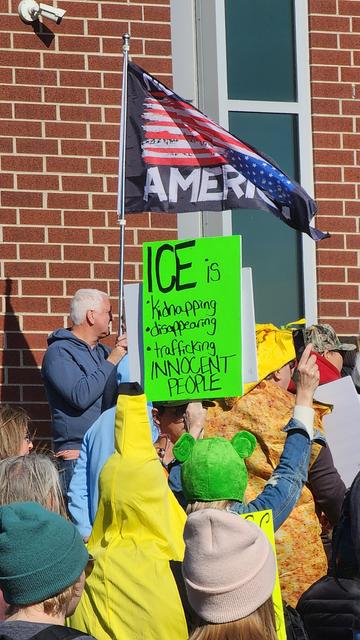 AMERI
ICE is
• Kidnapping
• disappearing
• trafficking
INNOCENT
PEOPLE